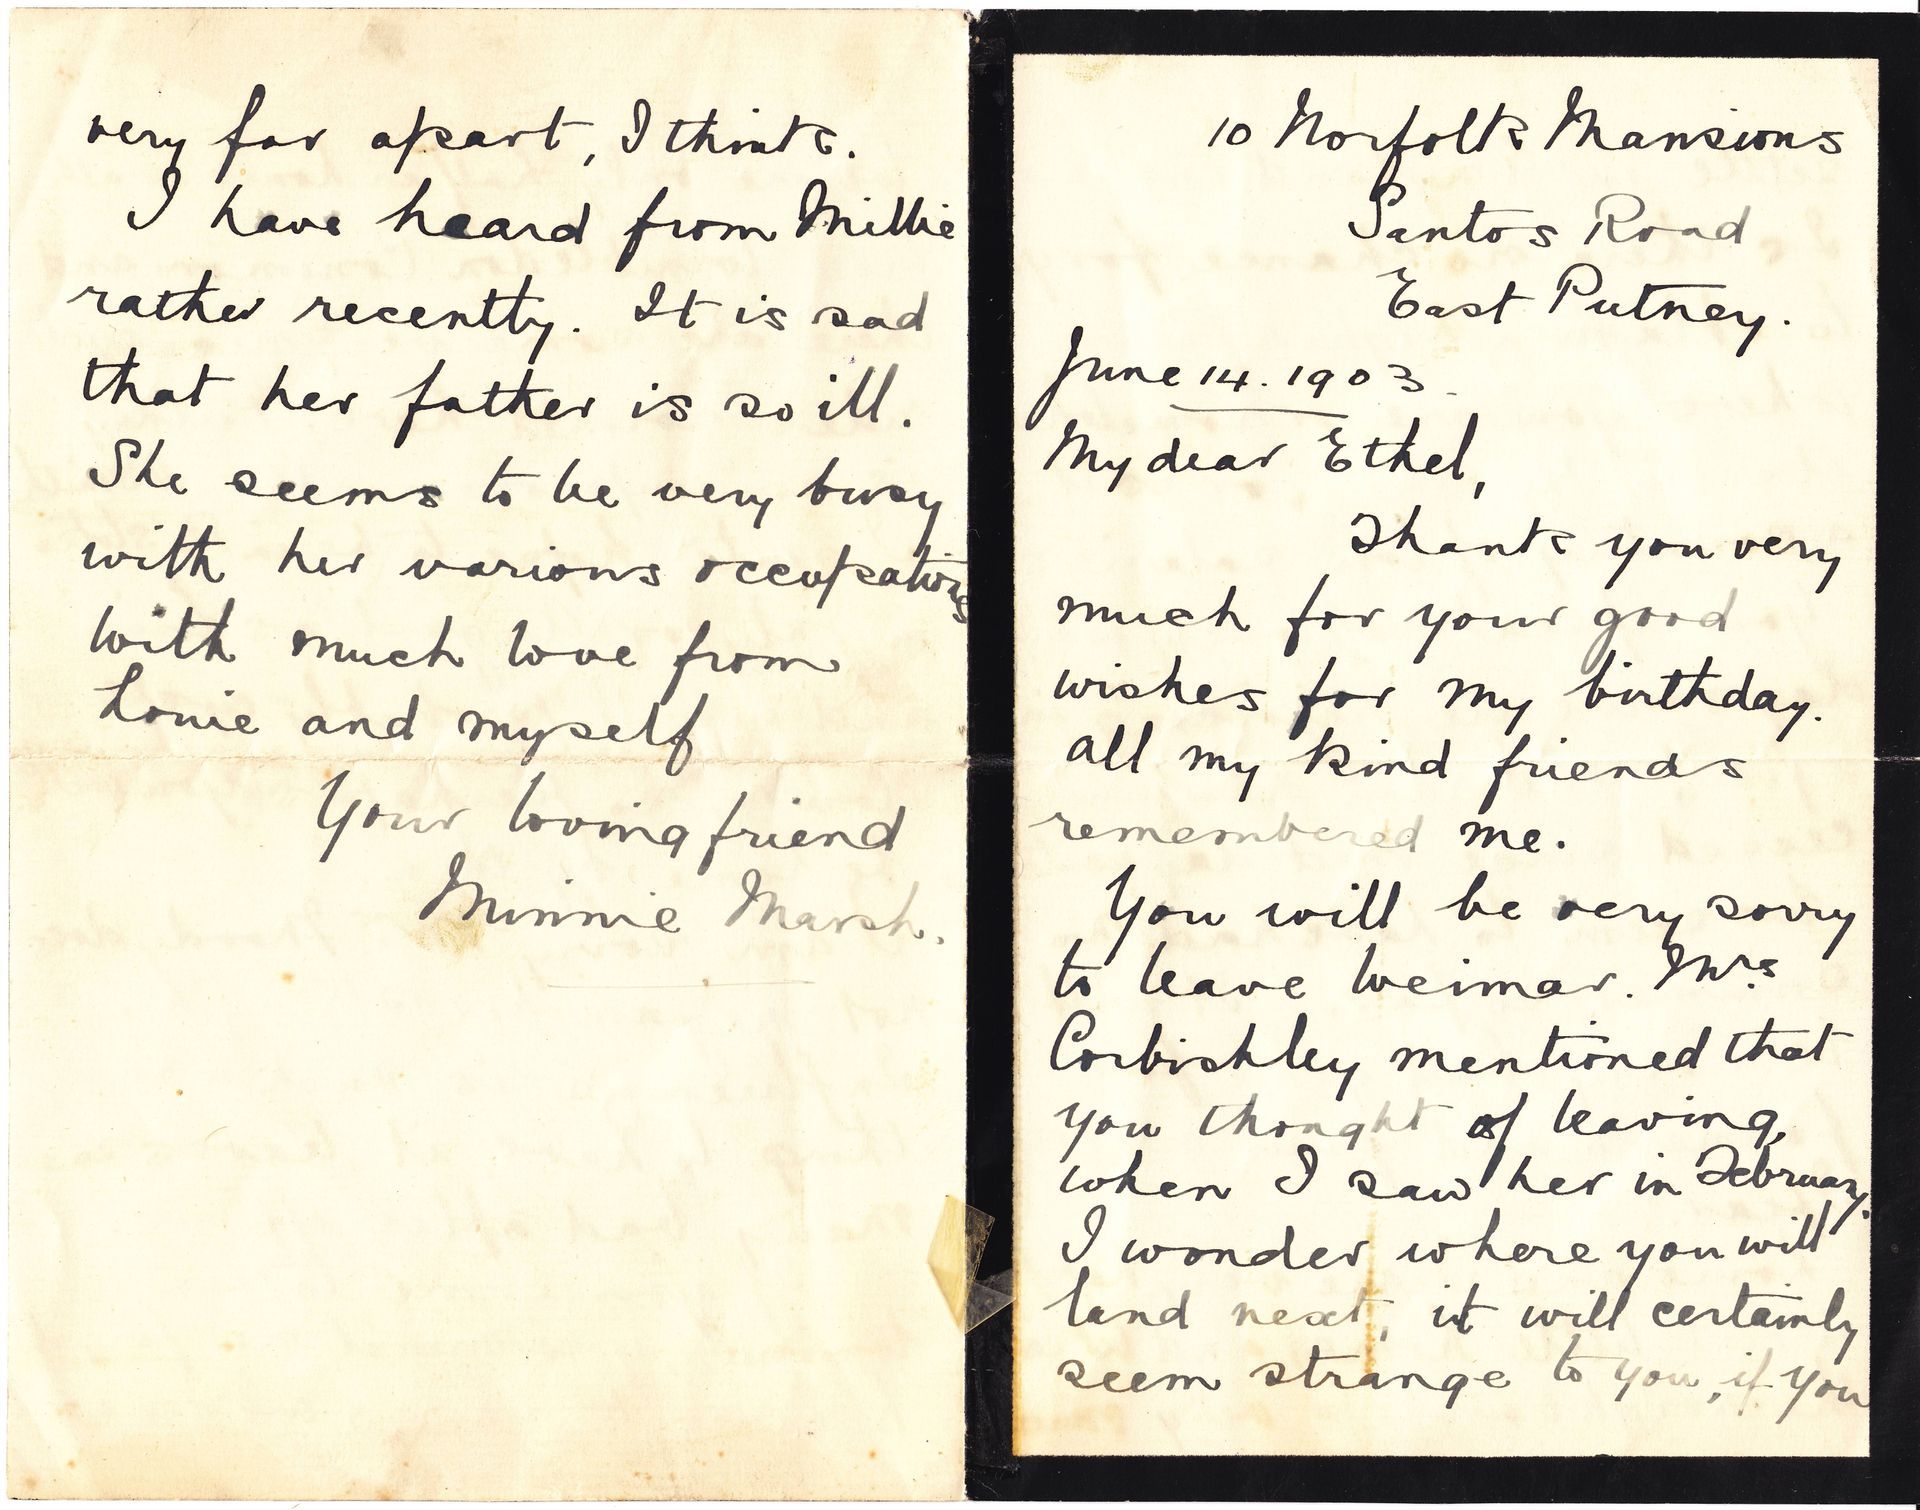 10 Norfolk Mansions
Santos Road
East Putney.
June 14. 1903.
My dear Ethel,
Thank you very
much for your good
wishes for my birthday.
all my kind friends
remembered me.
You will be very sorry
to leave Weimar. Mrs
Corbishley mentioned that
you thought of leaving,
when I saw her in February.
I wonder where you will
land next, it will certainly
seem strange to you, if you
very far apart, I think.
I have heard from Millie
rather recently. It is sad
that her father is so ill.
She seems to be very busy
with her various occupations
With much love from
Louie and myself
Your loving friend
Minnie Marsh.